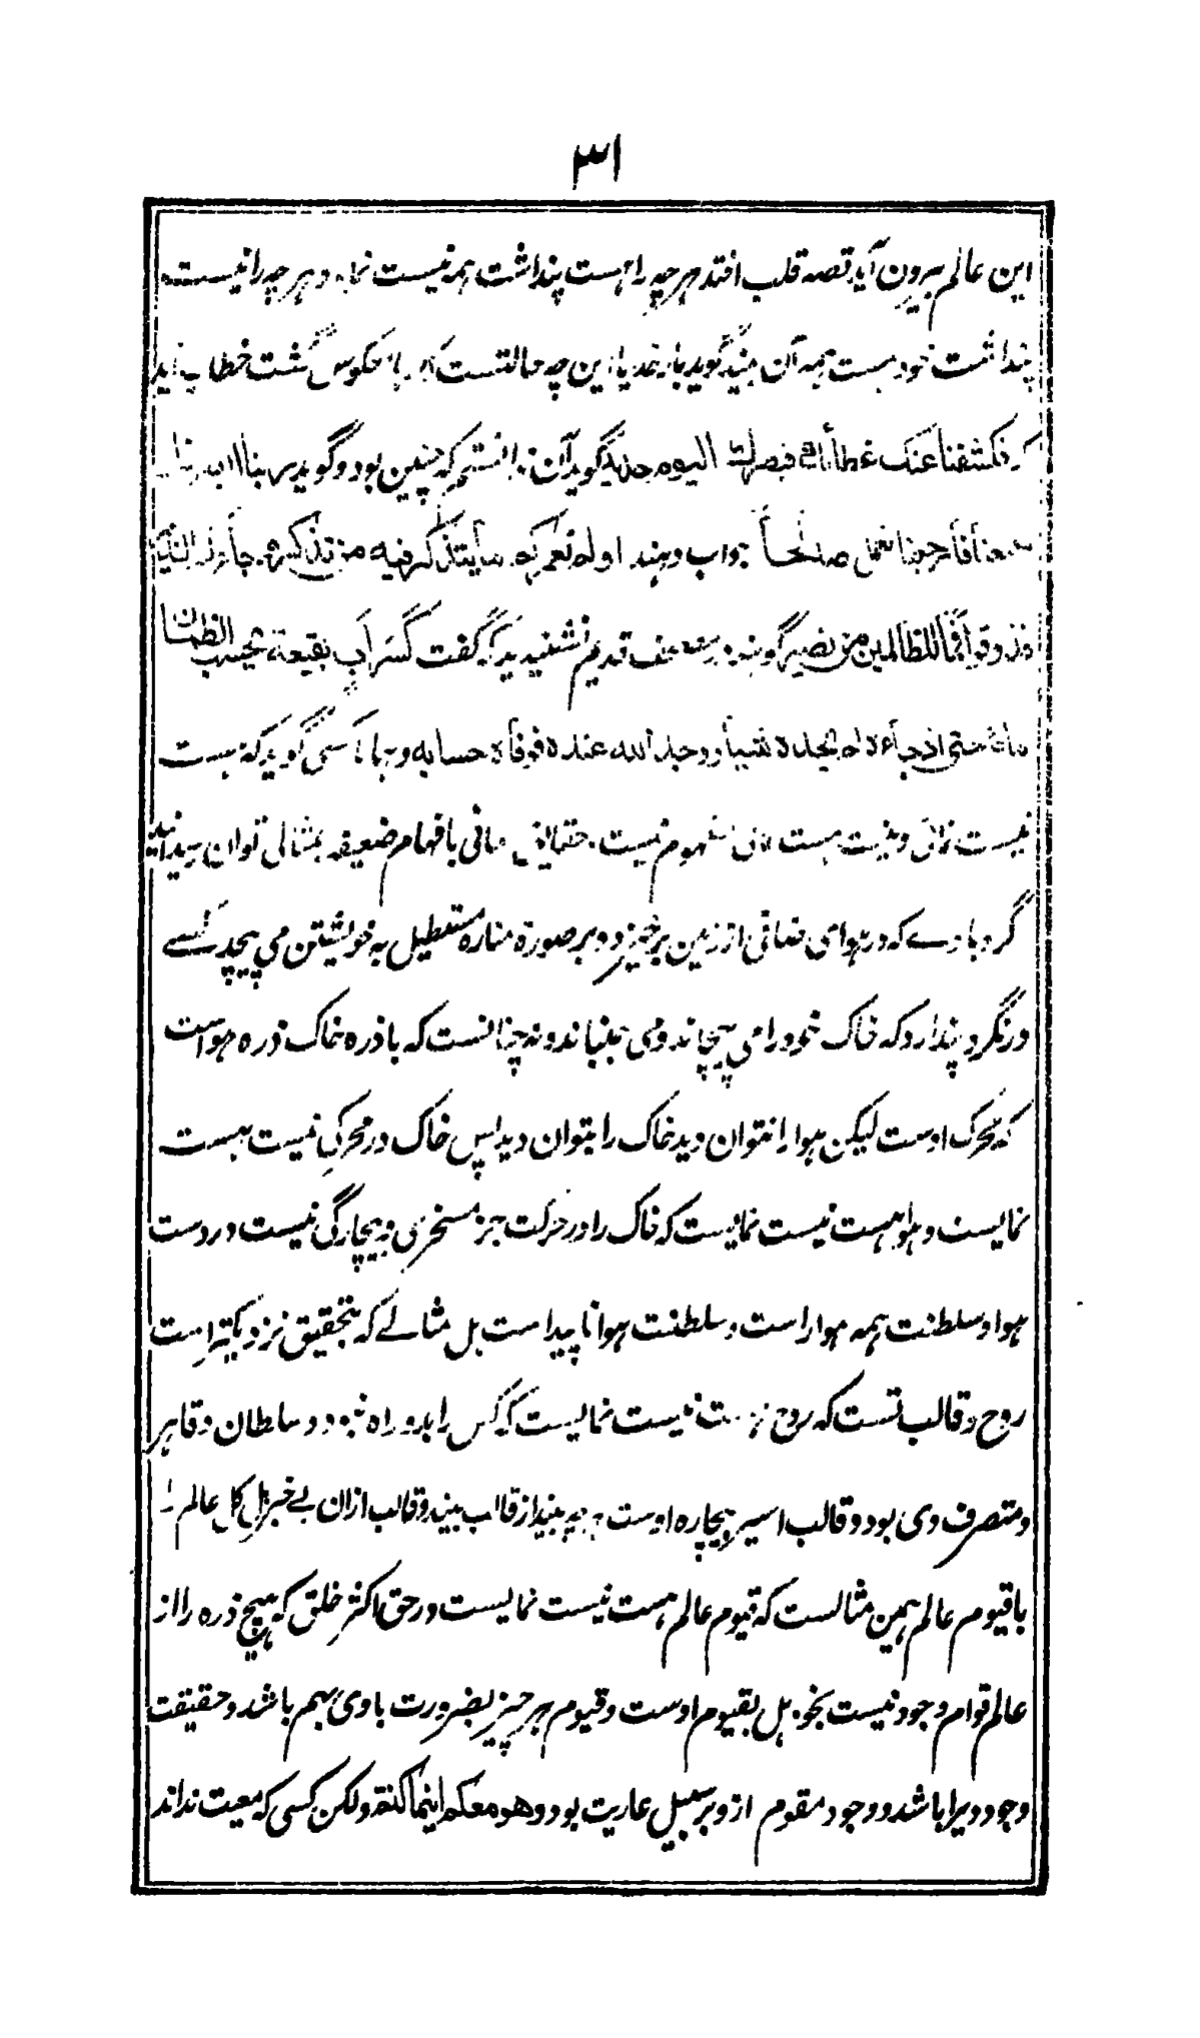 ۳۱
این عالم بیرون آید قصه قلب افتد هرچه را هست پنداشت همه نیست نماید و هرچه را نیست
پنداشت خود هست همه آن بیند گوید بار خدایا این چه حالتست که کارها معکوس گشت خطاب آید
که فکشفنا عنک غطاءک فبصرک الیوم حدید گوید آن ندانستم که چنین بود و گوید ربنا ابصرنا
وسمعنا فأرجعنا نعمل صالحاً جواب دهند اولم نعمرکم ما یتذکر فیه من تذکر و جاءکم النذیر
فذوقوا فما للظالمین من نصیر گویند در مصحف قدیم نشنیدید که گفت کسراب بقیعة یحسبه الظمان
ماء حتی اذا جاءه لم یجده شیئاً و وجد الله عنده فوفاه حسابه و همانا کسی گوید که هست
نیست نمای و نیست هست نمای مفهوم نیست حقایق معانی با فهام ضعیفه بمثالی توان رسانید
گردبادے که در هوای صافی از زمین برخیزد و بر صورة مناره مستطیل به خویشتن می پیچد کسے
در نگرد پندارد که خاک خود را می پیچاند و می جنباند و نه چنانست که با ذره خاک ذره هواست
که محرک اوست لیکن هوا را نتوان دید خاک را بتوان دید پس خاک در محرکی نیست هست
نمایست و هوا هست نیست نمایست که خاک را در حرکت جز مسخری و بیچارگی نیست در دست
هوا و سلطنت همه هوا راست و سلطنت هوا ناپیداست بل مثالے که بتحقیق نزدیکتر است
روح و قالب تست که روح هست نیست نمایست که کس را بدو راه نبود و سلطان و قاهر
و متصرف وی بود و قالب اسیر و بیچاره اوست هرچه بیند از قالب بیند و قالب ازان بے خبر بل کل عالم را
با قیوم عالم همین مثالست که قیوم عالم هست نیست نمایست در حق اکثر خلق که هیچ ذره را از
عالم قوام وجود نیست بخود بل بقیوم اوست و قیوم هر چیز بضرورت باوی بهم باشد و حقیقت
وجود ویرا باشد و وجود مقوم ازو بر سبیل عاریت بود و هو معکم اینما کنتم ولکن کسی که معیت نداند